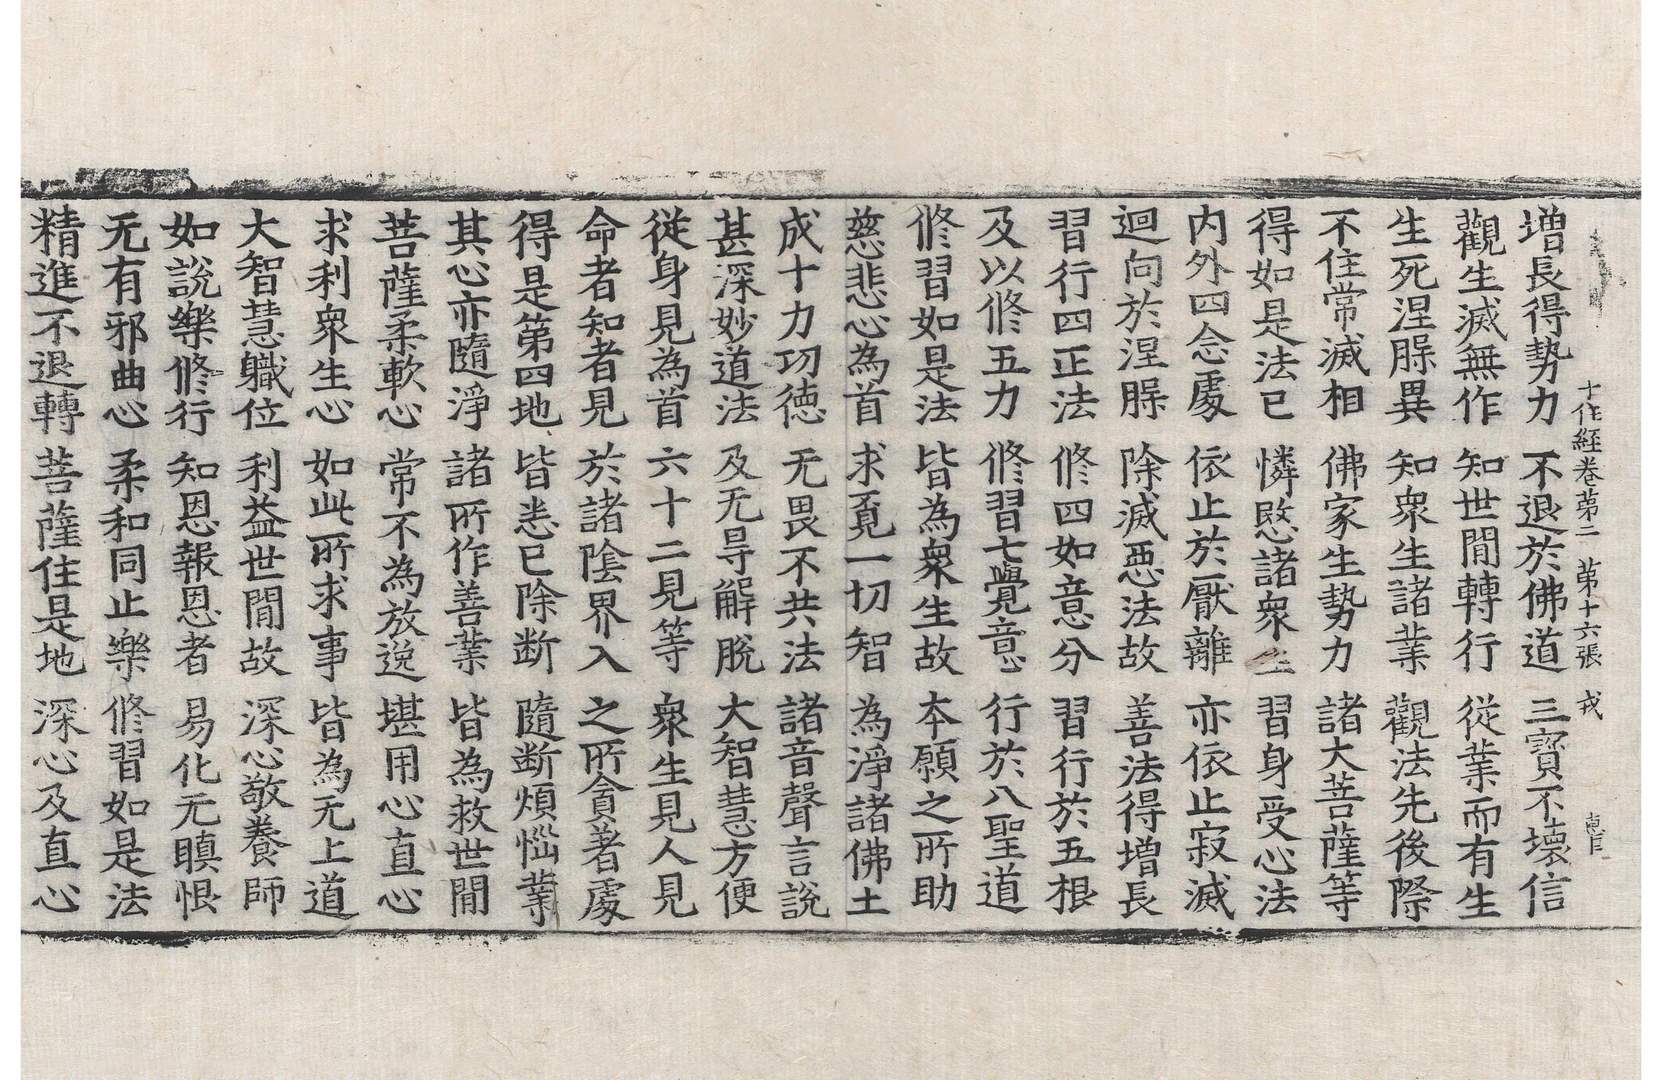 十住経卷第二　第十六張　戎
増長得勢力　不退於佛道　三寳不壞信
觀生滅無作　知世間轉行　從業而有生
生死涅槃異　知衆生諸業　觀法先後際
不住常滅相　佛家生勢力　諸大菩薩等
得如是法已　憐愍諸衆生　習身受心法
内外四念處　依止於厭離　亦依止寂滅
迴向於涅槃　除滅惡法故　善法得増長
習行四正法　修四如意分　習行於五根
及以修五力　修習七覺意　行於八聖道
修習如是法　皆為衆生故　本願之所助
慈悲心為首　求覔一切智　為淨諸佛土
成十力功德　无畏不共法　諸音聲言說
甚深妙道法　及无㝵解脫　大智慧方便
從身見為首　六十二見等　衆生見人見
命者知者見　於諸陰界入　之所貪著處
得是第四地　皆悉已除断　隨断煩惱業
其心亦隨淨　諸所作善業　皆為救世間
菩薩柔軟心　常不為放逸　堪用心直心
求利衆生心　如此所求事　皆為无上道
大智慧職位　利益世間故　深心敬養師
如說樂修行　知恩報恩者　易化无瞋恨
无有邪曲心　柔和同止樂　修習如是法
精進不退轉　菩薩住是地　深心及直心